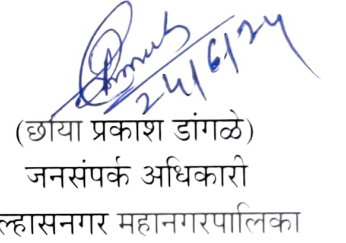 24/6/24
(छाया प्रकाश डांगळे)
जनसंपर्क अधिकारी
ल्हासनगर महानगरपालिका